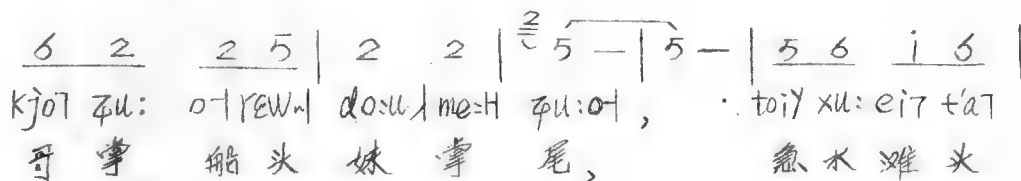 6 2 2 5 | 2 2 | 2 5 — | 5 — | 5 6 i 6 |
kjo˥ ȹu: o˧ rɛw˧ do:u˩ me:˧ ȹu:o˧, toiY xu: ei˥ t'a˥
哥 掌 船 头 妹 掌 尾, 急 水 滩 头